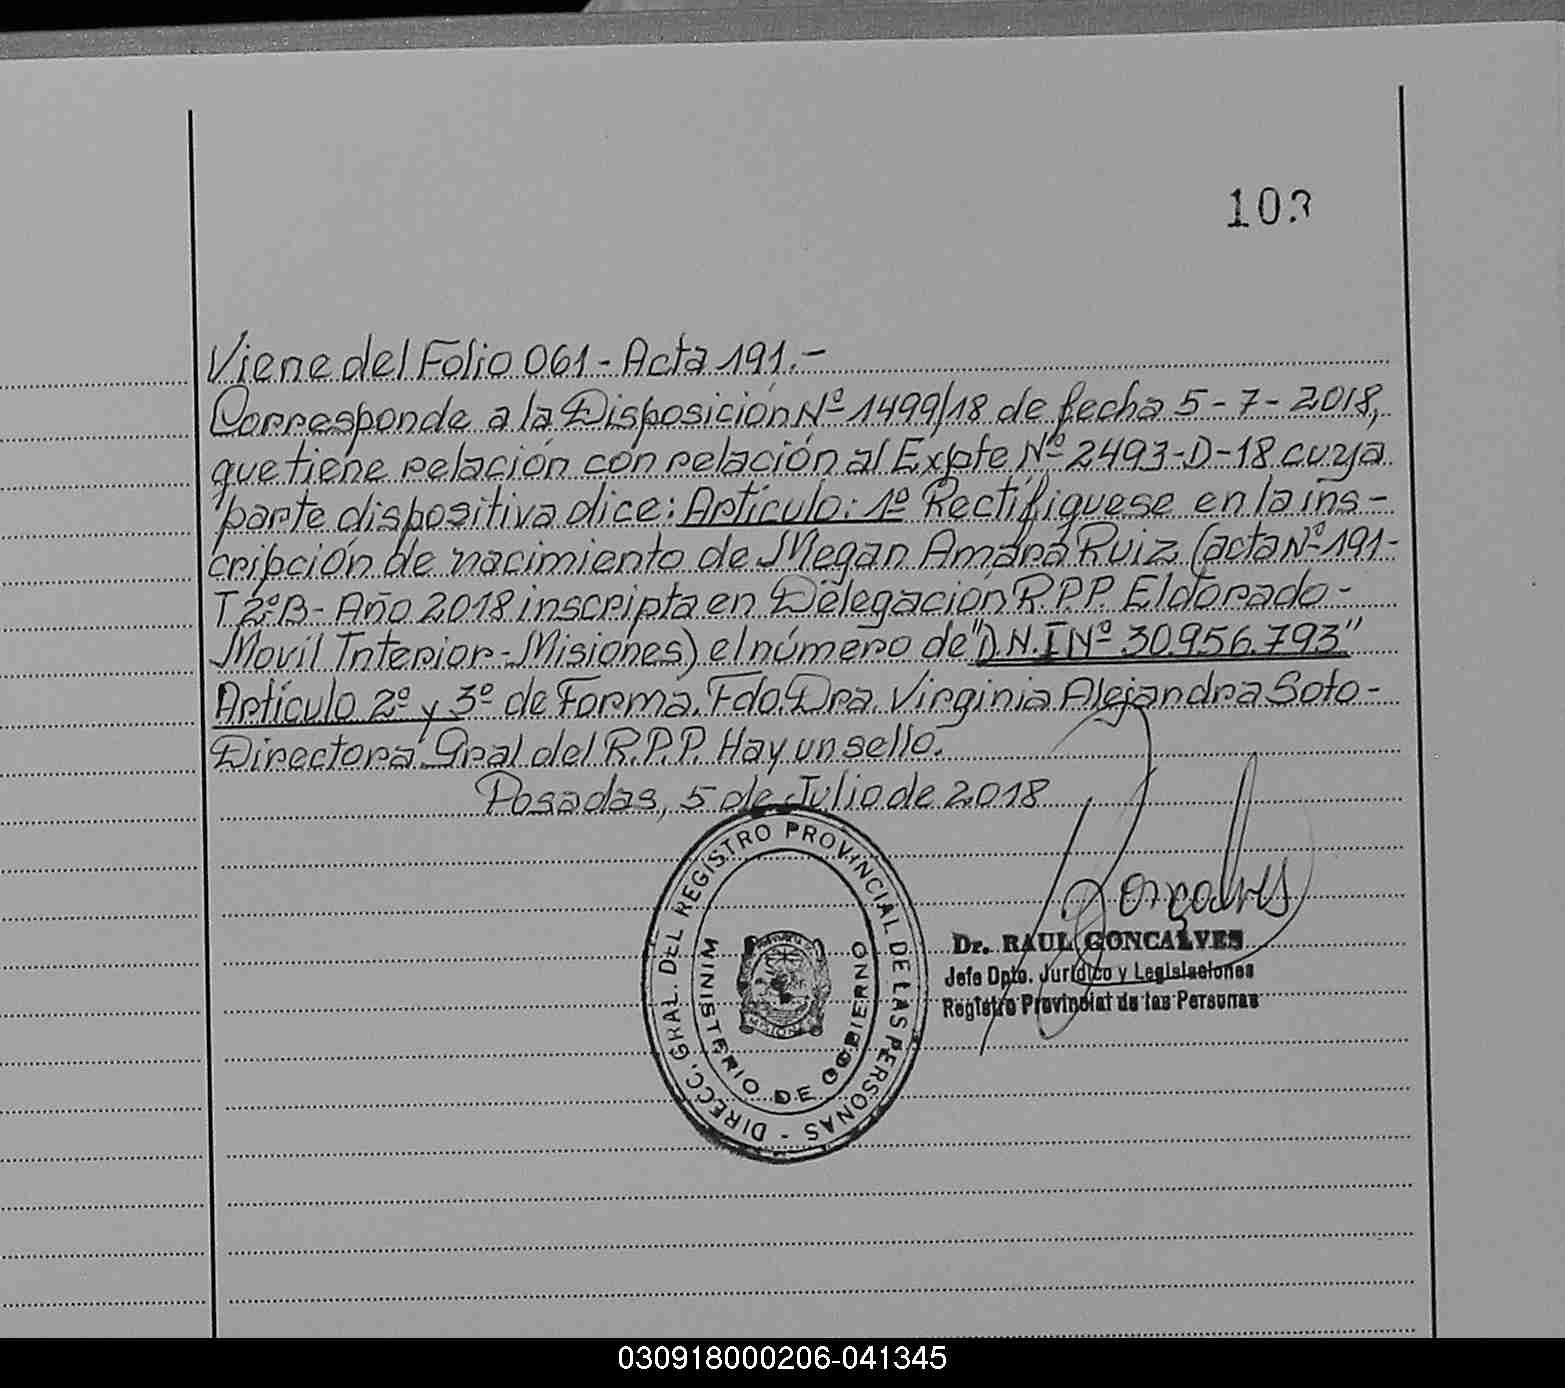 103
Viene del Folio 061 - Acta 191.-
Corresponde a la Disposición Nº 1499/18 de fecha 5-7-2018,
que tiene relación con relación al Expte Nº 2493-D-18 cuya
parte dispositiva dice: Artículo: 1º Rectifíquese en la ins-
cripción de nacimiento de Megan Amara Ruiz (acta Nº 191-
T2ºB- Año 2018 inscripta en Delegación R.P.P. Eldorado-
Movil Interior-Misiones) el número de "D.N.I Nº 30.956.793"
Artículo 2º y 3º de Forma. Fdo. Dra. Virginia Alejandra Soto-
Directora Gral del R.P.P. Hay un sello.
Posadas, 5 de Julio de 2018
DIRECC. GRAL. DEL REGISTRO PROVINCIAL DE LAS PERSONAS -
MINISTERIO DE GOBIERNO
MISIONES
Gonçalves
Dr. RAUL GONCALVES
Jefe Dpto. Jurídico y Legislaciones
Registro Provincial de las Personas
030918000206-041345